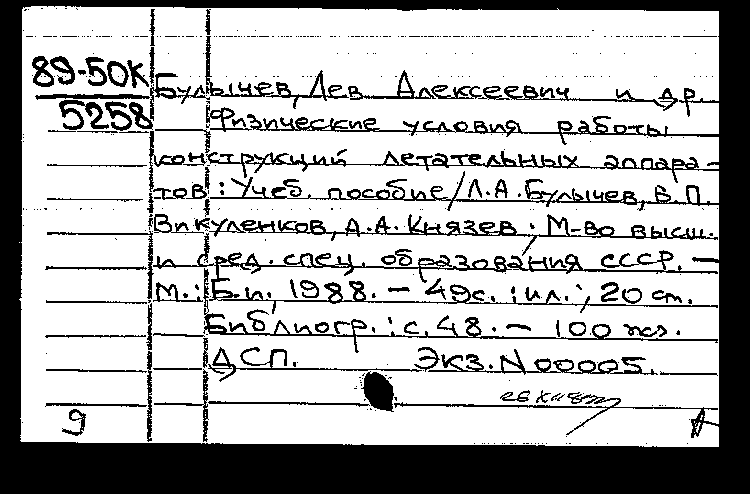 89-50К
5258
Булычев, Лев Алексеевич и др.
Физические условия работы
конструкций летательных аппара-
тов : Учеб. пособие / Л.А. Булычев, В.П.
Викуленков, А.А. Князев ; М-во высш.
и сред. спец. образования СССР. —
М. : Б.и., 1988. — 49с. : ил. ; 20 см.
Библиогр. : с. 48. — 100 экз.
ДСП. Экз. N 00005.
9